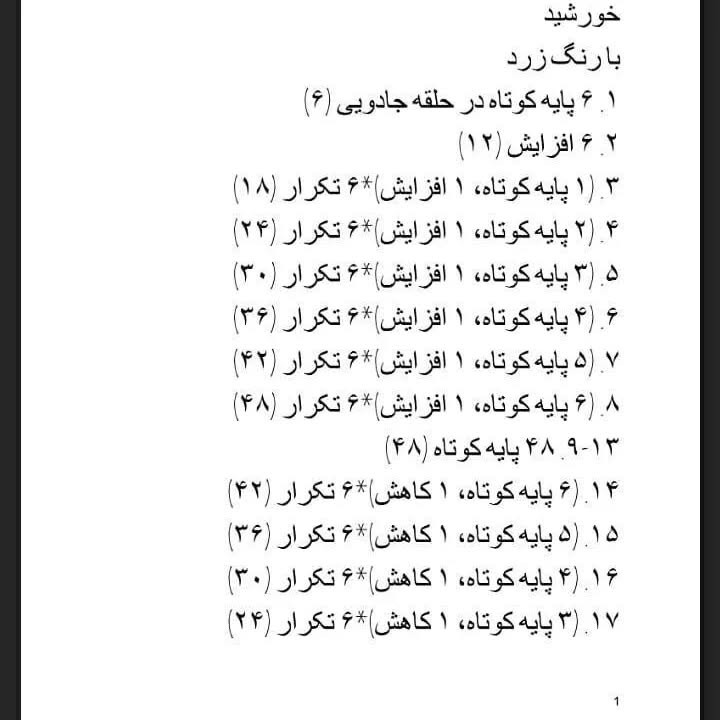 خورشید
با رنگ زرد
۱. ۶ پایه کوتاه در حلقه جادویی (۶)
۲. ۶ افزایش (۱۲)
۳. (۱ پایه کوتاه، ۱ افزایش)*۶ تکرار (۱۸)
۴. (۲ پایه کوتاه، ۱ افزایش)*۶ تکرار (۲۴)
۵. (۳ پایه کوتاه، ۱ افزایش)*۶ تکرار (۳۰)
۶. (۴ پایه کوتاه، ۱ افزایش)*۶ تکرار (۳۶)
۷. (۵ پایه کوتاه، ۱ افزایش)*۶ تکرار (۴۲)
۸. (۶ پایه کوتاه، ۱ افزایش)*۶ تکرار (۴۸)
۹-۱۳. ۴۸ پایه کوتاه (۴۸)
۱۴. (۶ پایه کوتاه، ۱ کاهش)*۶ تکرار (۴۲)
۱۵. (۵ پایه کوتاه، ۱ کاهش)*۶ تکرار (۳۶)
۱۶. (۴ پایه کوتاه، ۱ کاهش)*۶ تکرار (۳۰)
۱۷. (۳ پایه کوتاه، ۱ کاهش)*۶ تکرار (۲۴)
1